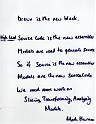 Drawn is the new black.
High Level Source Code is the new assembler
Models are used to generate source
So if Source is the new assembler
Models are the new Source Code
We need more work on
Storing, Transforming, Analyzing
Models.